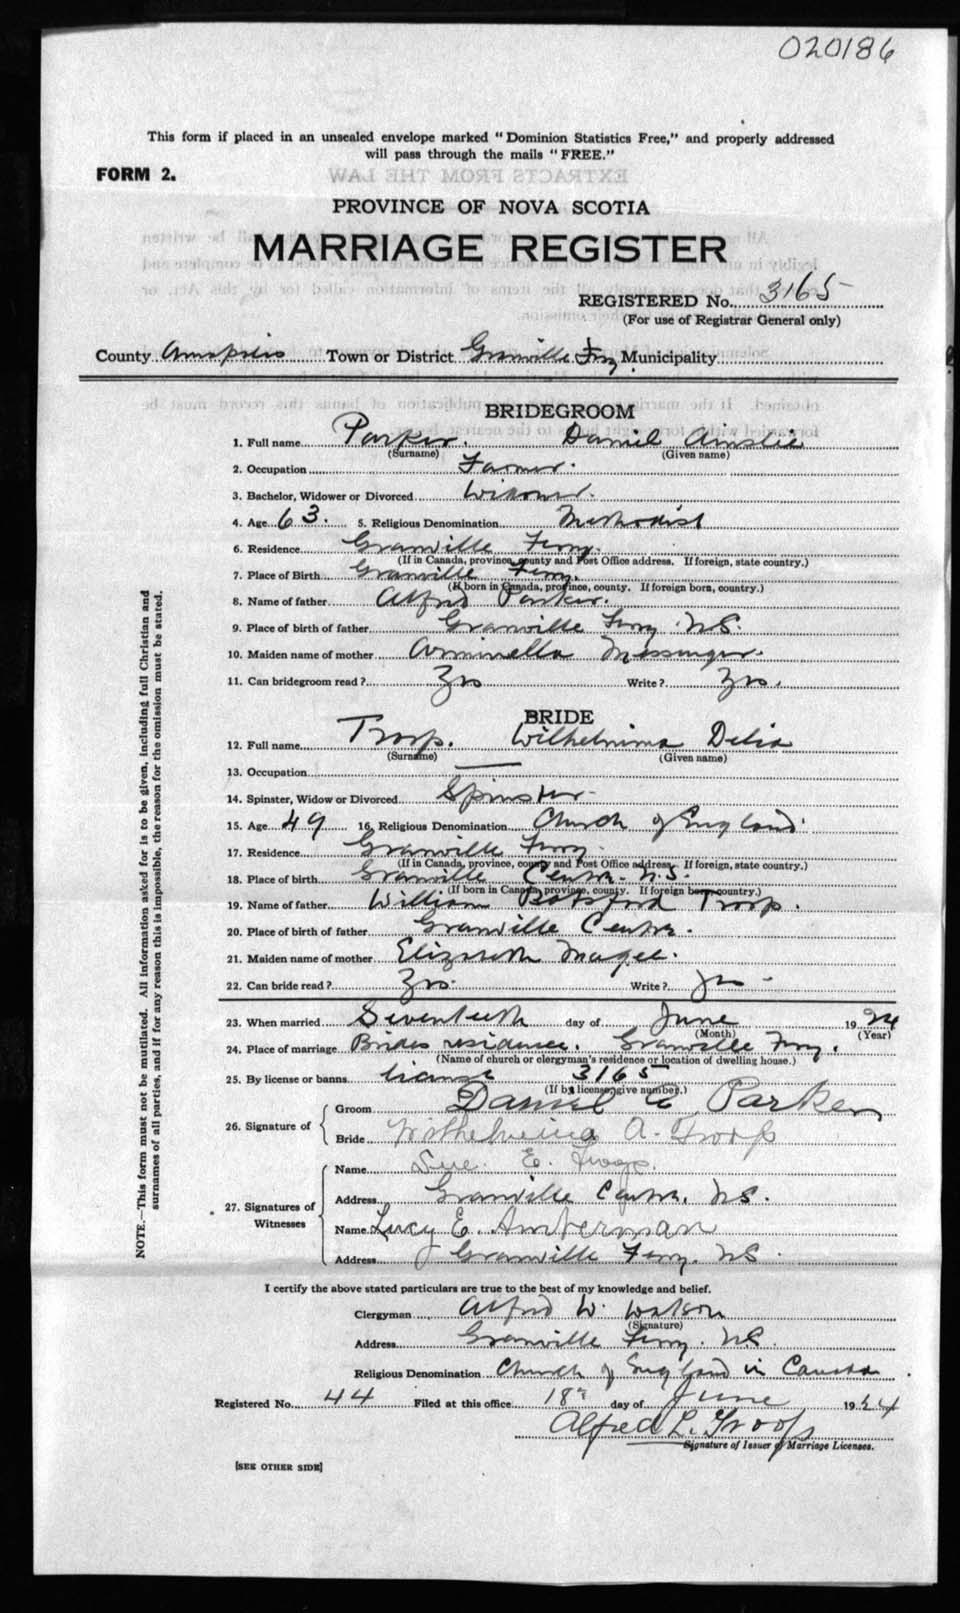 020186
This form if placed in an unsealed envelope marked "Dominion Statistics Free," and properly addressed
will pass through the mails "FREE."
FORM 2.
PROVINCE OF NOVA SCOTIA
MARRIAGE REGISTER
REGISTERED No. 3165
(For use of Registrar General only)
County Annapolis Town or District Granville Ferry Municipality
BRIDEGROOM
1. Full name Parker. Daniel Ainslie
(Surname) (Given name)
2. Occupation Farmer.
3. Bachelor, Widower or Divorced Widower.
4. Age 63. 5. Religious Denomination Methodist
6. Residence Granville Ferry.
(If in Canada, province, county and Post Office address. If foreign, state country.)
7. Place of Birth Granville Ferry.
(If born in Canada, province, county. If foreign born, country.)
8. Name of father Alfred Parker.
9. Place of birth of father Granville Ferry. N.S.
10. Maiden name of mother Arminella Messenger.
11. Can bridegroom read? Yes Write? Yes.
BRIDE
12. Full name Troop. Wilhelmina Delia
(Surname) (Given name)
13. Occupation —
14. Spinster, Widow or Divorced Spinster.
15. Age 49 16. Religious Denomination Church of England.
17. Residence Granville Ferry.
(If in Canada, province, county and Post Office address. If foreign, state country.)
18. Place of birth Granville Centre. N.S.
(If born in Canada, province, county. If foreign born, country.)
19. Name of father William Botsford Troop.
20. Place of birth of father Granville Centre.
21. Maiden name of mother Elizabeth Magee.
22. Can bride read? Yes. Write? Yes
23. When married Seventeenth day of June 1924
(Month) (Year)
24. Place of marriage Brides residence. Granville Ferry.
(Name of church or clergyman's residence or location of dwelling house.)
25. By license or banns license 3165
(If by license, give number.)
26. Signature of Groom Daniel A Parker
Bride Wilhelmina A. Troop
27. Signatures of Witnesses Name E. Troop.
Address Granville Centre. N.S.
Name Lucy E. Amberman
Address Granville Ferry. N.S.
NOTE.—This form must not be mutilated. All information asked for is to be given, including full Christian and
surnames of all parties, and if for any reason this is impossible, the reason for the omission must be stated.
I certify the above stated particulars are true to the best of my knowledge and belief.
Clergyman Alfred W. Watson
(Signature)
Address Granville Ferry. N.S.
Religious Denomination Church of England in Canada.
Registered No. 44 Filed at this office 18th day of June 1924
Alfred L. Troop
Signature of Issuer of Marriage Licenses.
[SEE OTHER SIDE]